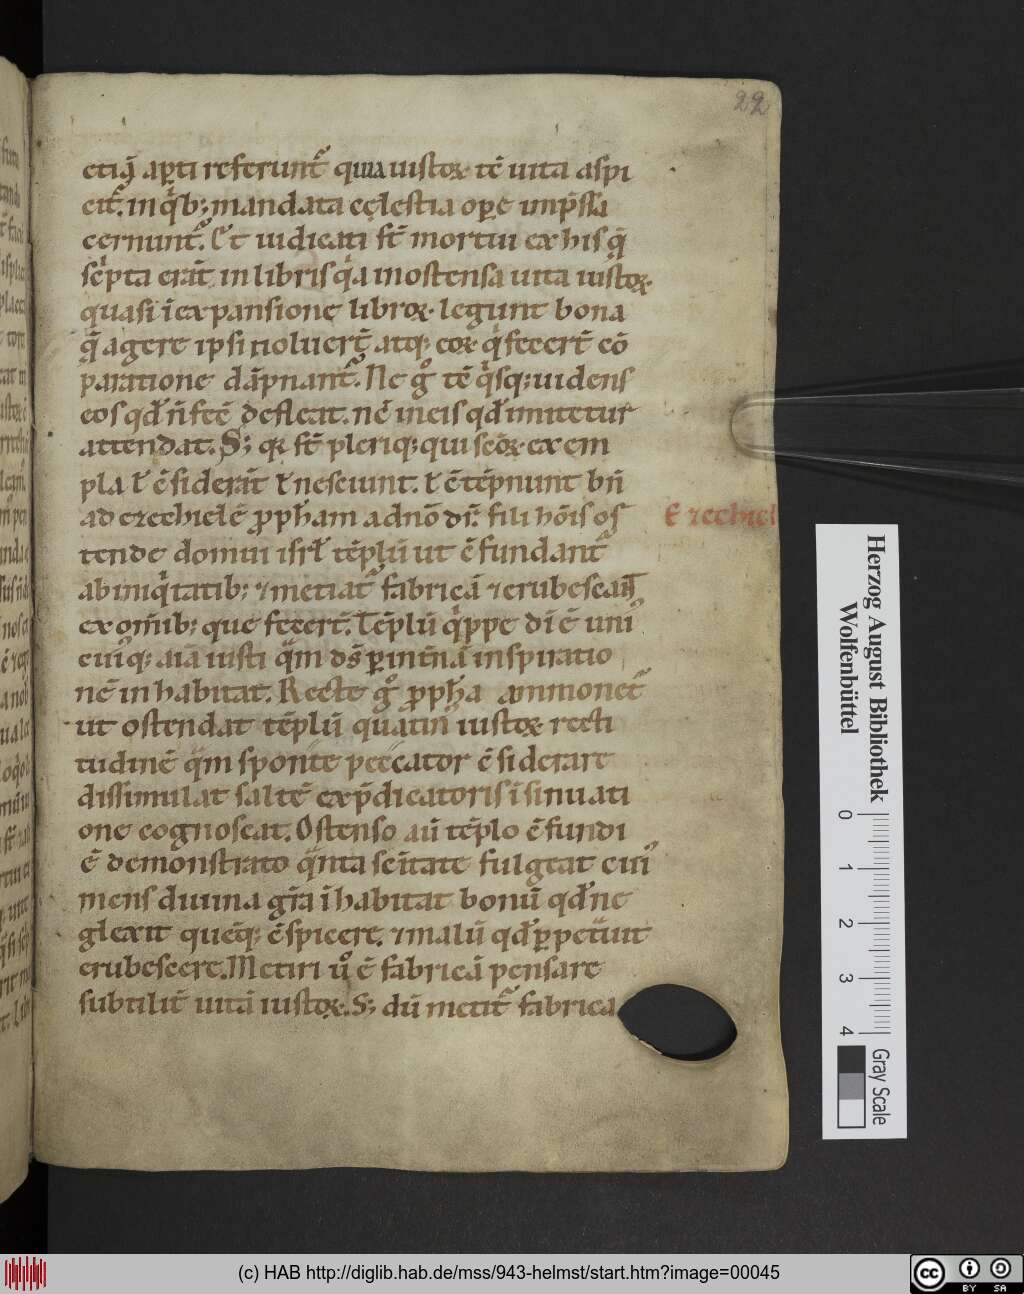 22
etiā apti referunt᷒ quia iustoꝝ tē uita aspi
cit᷒. in qͥb; mandata cęlestia oꝑe imp̄ssa
cernunt᷒. Et iudicati st̄ mortui ex his q̄
scͥpta erāt in libris qͥa in ostensa uita iustoꝝ
quasi ī expansione libroꝝ legunt bona
q̄ agere ipsi noluert̄ atq; eoꝝ qͥ fecert̄ cō
paratione dāpnant᷒. Ne gͦ tē qͥsq; uidens
eos qd̄ n̄ fēc defleat. nē in eis qd̄ imitetur
attendat. S; qꝛ st̄ pleriq; qui sc̄oꝝ exem
pla ł c̄siderāt ł nesciunt. ł c̄tēpnunt bn̄
ad ezechielē ꝓph̄am a dn̄o dr̄. fili hōis os
Ezechiel
tende domui isrł tēplū ut c̄fundant᷒
ab iniqͥtatib; ⁊ metiat᷒ fabricā ⁊ erubescant
ex om̄ib; que fecert̄. Tēplū qͥppe dī ē uni᷒
cui᷒q; aīa iusti qͣm ds̄ ꝑ int̄nā inspiratio
nē inhabitat. Recte gͦ ꝓph̄a ammonet᷒
ut ostendat tēplū quatin᷒ iustoꝝ recti
tudinē qͣm sponte peccator c̄siderare
dissimulat saltē ex p̄dicatoris īsinuati
one cognoscat. Ostenso aū tēplo c̄fundi
ē demonstrato qͣnta sc̄itate fulgeat cui᷒
mens diuina gr̄a īhabitat bonū qd̄ ne
glexit queq; c̄spicere. ⁊ malū qd̄ ꝑpetͣuit
erubescere. Metiri uͦ ē fabricā pensare
subtilit̄ uitā iustoꝝ. S; dū metit᷒ fabrica
Herzog August Bibliothek
Wolfenbüttel
0 1 2 3 4
Gray Scale
(c) HAB http://diglib.hab.de/mss/943-helmst/start.htm?image=00045
cc BY SA